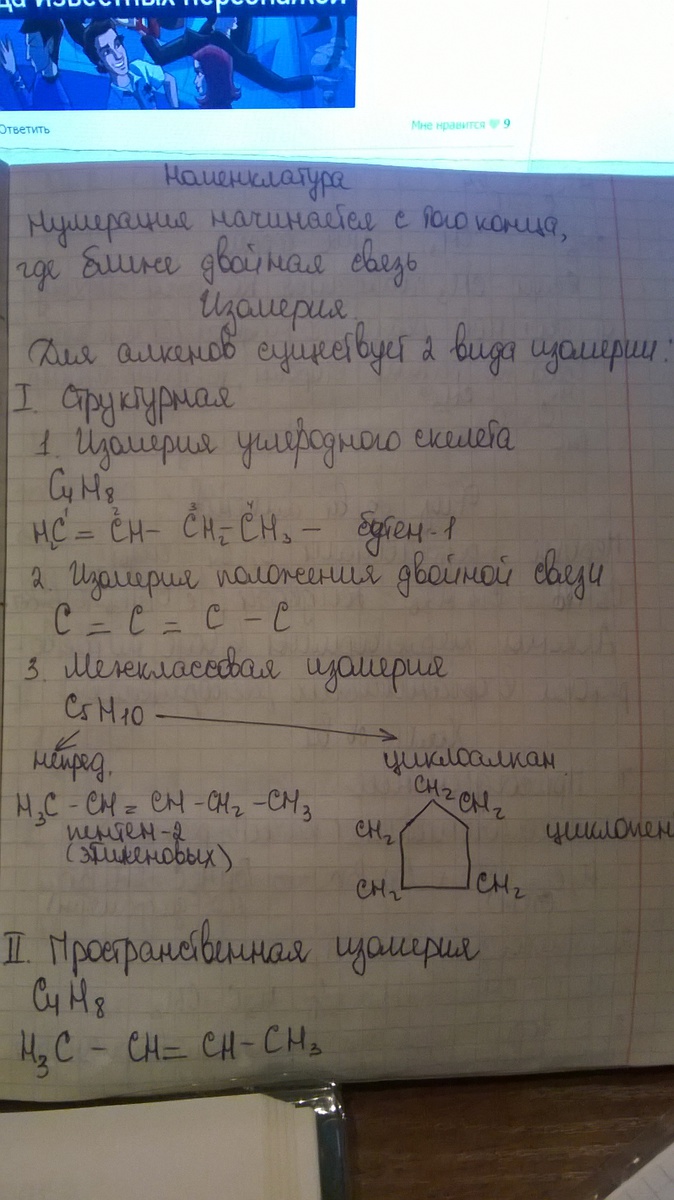 да известных персонажей
Ответить
Мне нравится 9
Номенклатура
Нумерация начинается с того конца,
где ближе двойная связь
Изомерия.
Для алкенов существует 2 вида изомерии:
I. Структурная
1. Изомерия углеродного скелета
C4H8
H2C1 = C2H - C3H2 - C4H3 - бутен-1
2. Изомерия положения двойной связи
C = C = C - C
3. Межклассовая изомерия
C5H10
непред. циклоалкан.
H3C - CH = CH - CH2 - CH3
пентен-2
(этиленовых)
CH2 CH2
CH2 циклопен
CH2 CH2
II. Пространственная изомерия
C4H8
H3C - CH = CH - CH3